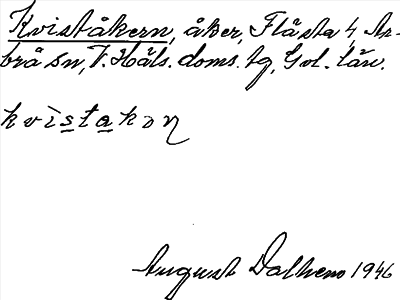 Kviståkern, åker, Flästa 4, Ar-
brå sn, V. Häls. doms. tg, Gvl. län.
kvistakən
August Dalhem 1946